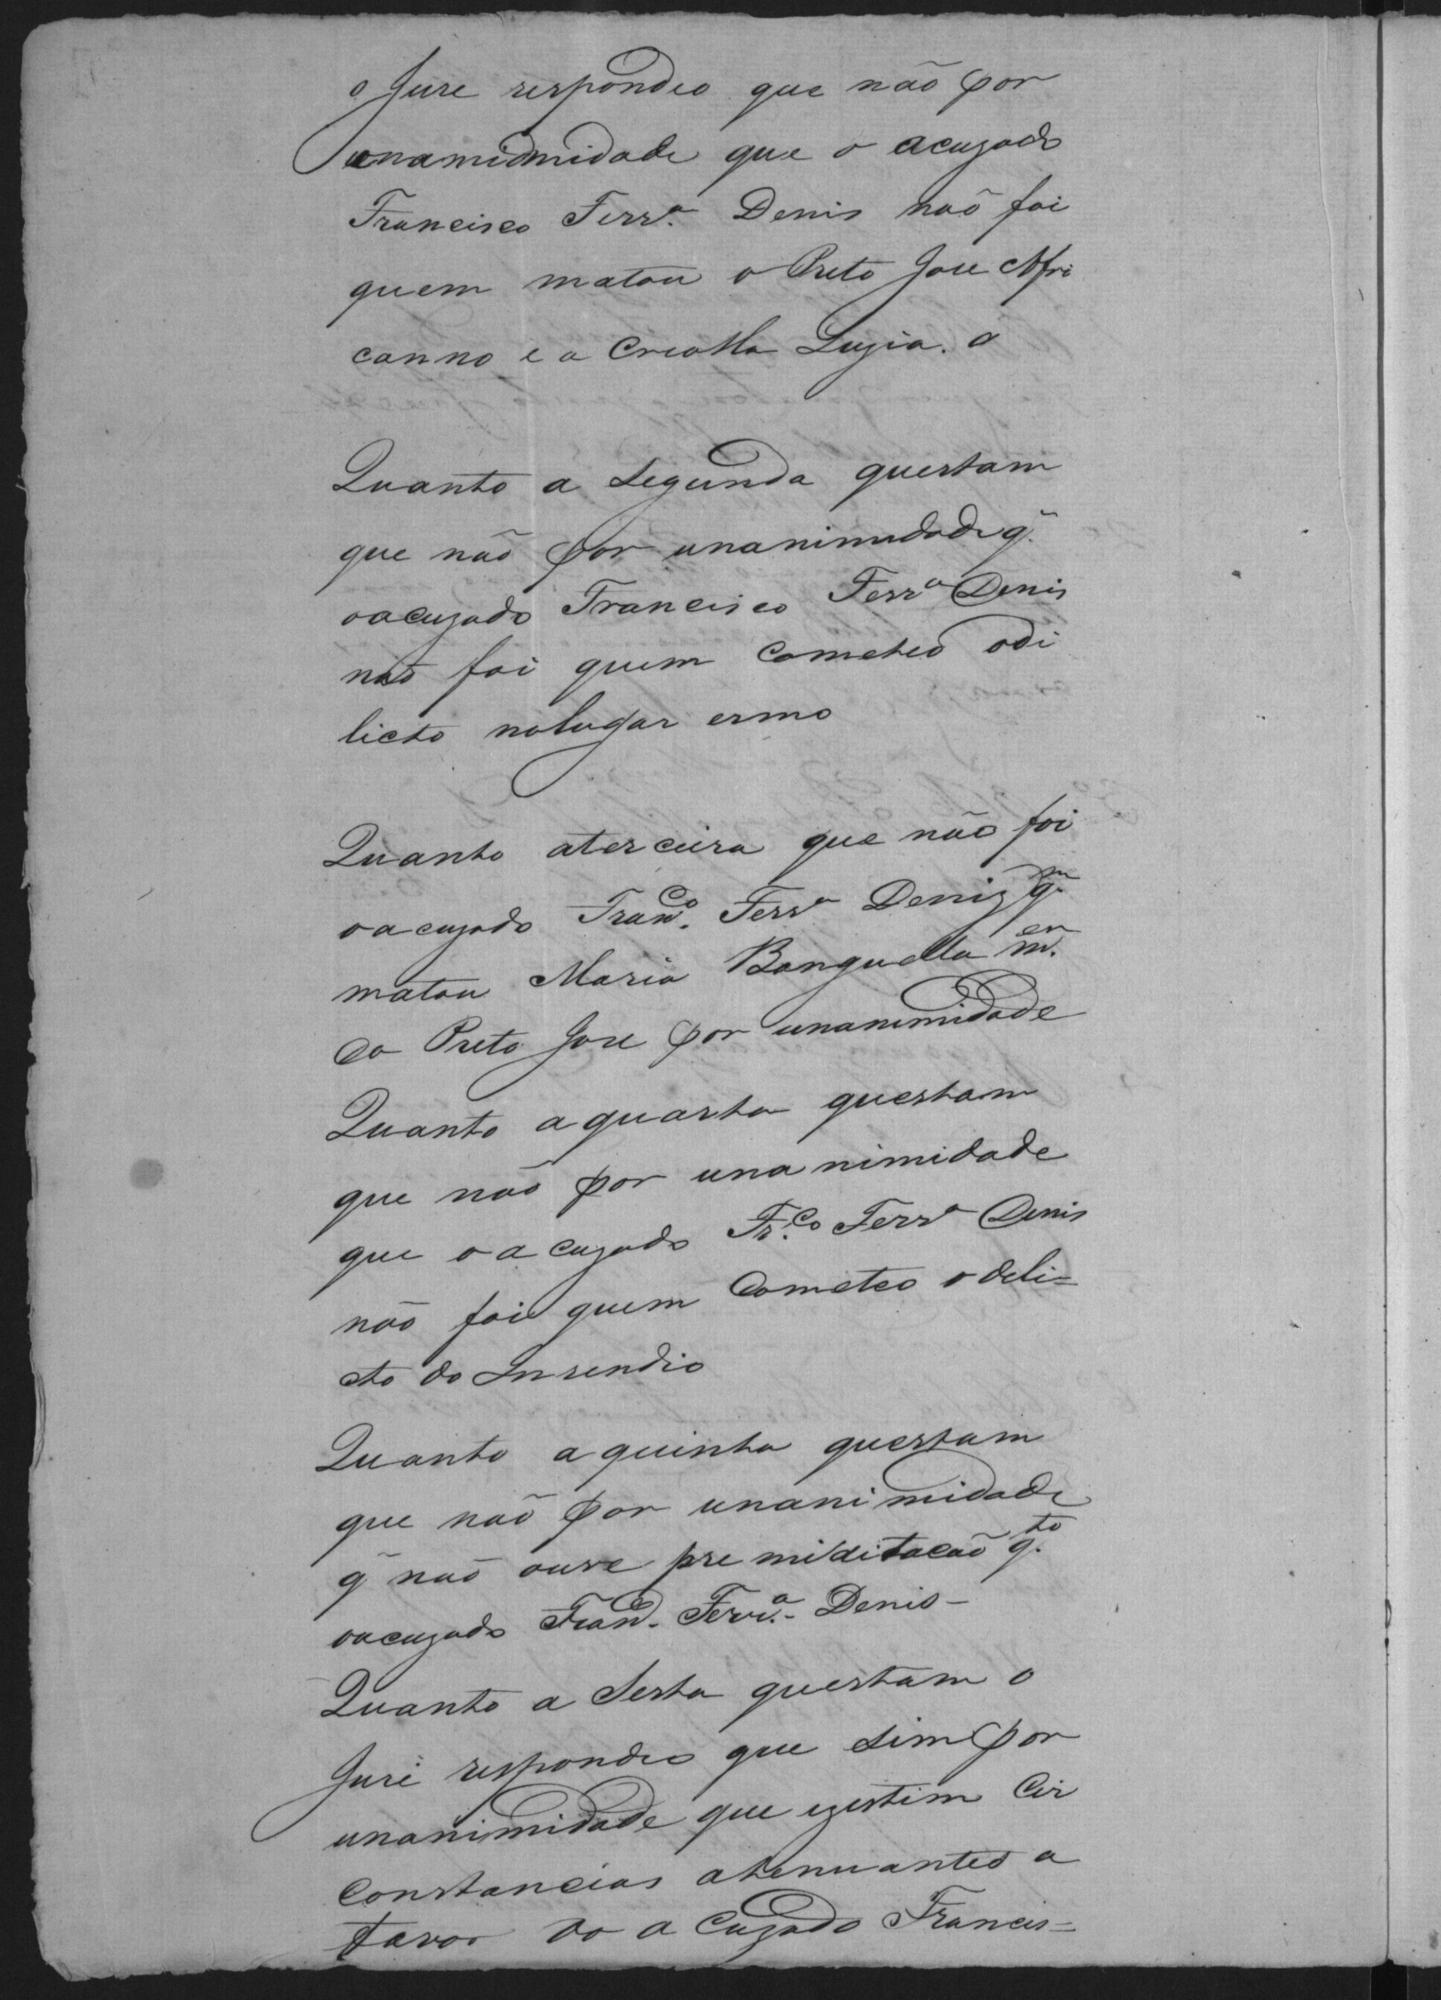 o Jure respondeo que não por
unamidmidade que o acuzado
Francisco Ferrª Denis naõ foi
quem matou o Preto Jose Afri
canno e a Creolla Luzia. o
Quanto a Segunda questam
que não por unanimidade q̃
oacuzado Francisco Ferrª Denis
naõ foi quem Cometeo odi
licto nolugar ermo
Quanto aterceira que não foi
oacuzado Franco. Ferrª Deniz q.m
matou Maria Banguella m.er
do Preto Jose por unanimidade
Quanto aquarta questam
que naõ por unanimidade
que oacuzado Fr.co Ferrª Denis
não foi quem Cometeo o deli=
cto do Insendio
Quanto aquinta questam
que naõ por unanimidade
q̃ naõ ouve premiditacaõ q.to
oacuzado Franco. Ferr.ª- Denis-
Quanto a Sesta questam o
Jure respondeo que sim por
unanimidade que ezistim Cir
Constancias atenuantes a
favor do aCuzado Francis=